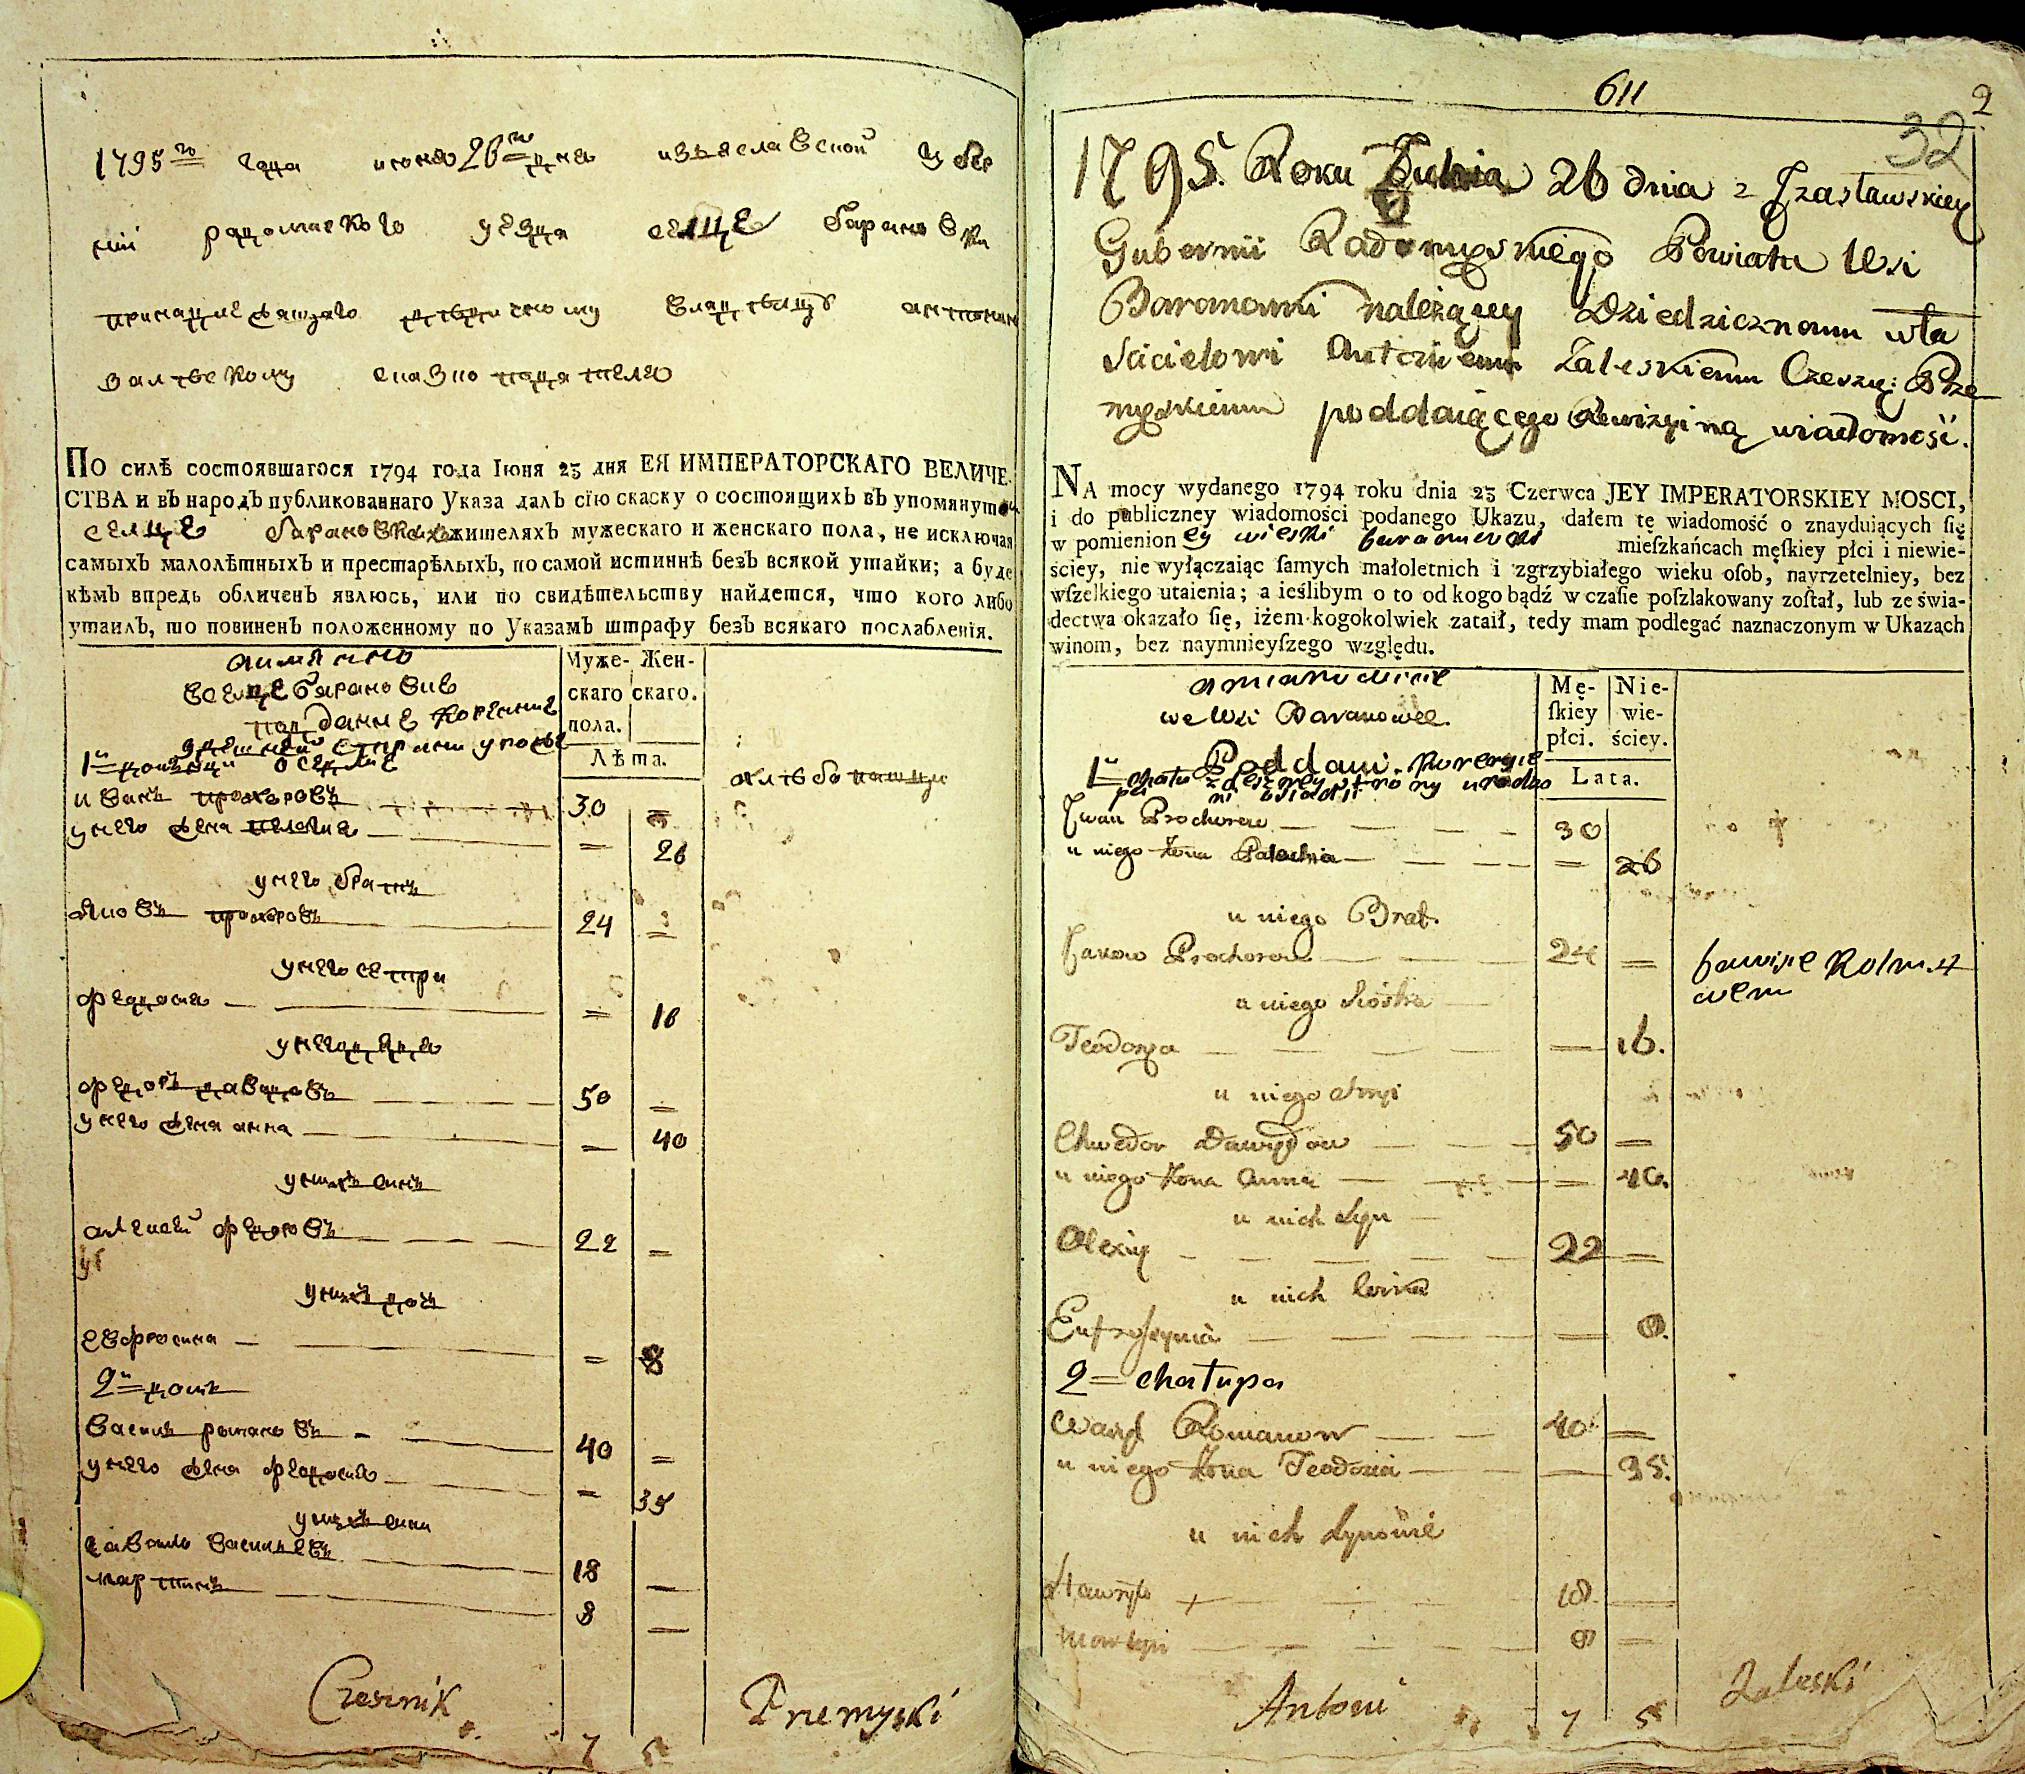 1795го года июня 26го дня изъяславской губер
нии радомиского уезда селце барановки
принадлежащаго дедичному владелцу антонию
залескому
По силѣ состоявшагося 1794 года Іюня 23 дня ЕЯ ИМПЕРАТОРСКАГО ВЕЛИЧЕ-
СТВА и въ народъ публикованнаго Указа далъ сїю скаску о состоящихъ въ упомянутом
селце барановках жишеляхъ мужескаго и женскаго пола, не исключая
самыхъ малолѣтныхъ и престарѣлыхъ, по самой истиннѣ безъ всякой утайки; а буде
кѣмъ впредь обличенъ явлюсь, или по свидѣтельству найдется, что кого либо
утаилъ, то повиненъ положенному по Указамъ штрафу безъ всякаго послабленія.
аимянно
Муже-
скаго
пола.
Жен-
скаго.
Лѣта.
в селце барановке
поддание
1й
иванъ прохоровъ 30 =
у него жена пелагия = 26
у него братъ
яковъ прохоровъ 24 =
у него сестра
федося = 16
у него дядя
федоръ давидовъ 50 =
у него жена анна = 40
у нихъ синъ
алексей федоровъ 22 =
у нихъ доч
евфросина = 8
2й домъ
василь романовъ 40 =
у него жена федосия = 35
у нихъ сини
гаврило василевъ 18 —
мартинъ 8 —
Czesznik Przemyski
7 5
611
2
32
1795. Roku Junia 26 dnia z Jzasławskiey
Gubernii Radomyskiego Powiatu Wsi
Baranowki należącey Dziedzicznemu wła
scicielowi Antoniemu Zaleskiemu Czeszn: Prze
myskiemu poddaiącego Rewizyiną wiadomość.
NA mocy wydanego 1794 roku dnia 23 Czerwca JEY IMPERATORSKIEY MOSCI,
i do publiczney wiadomości podanego Ukazu, dałem tę wiadomość o znayduiących ſię
w pomienioney wioski baranowki mieſzkańcach męſkiey płci i niewie-
ściey, nie wyłączaiąc ſamych małoletnich i zgrzybiałego wieku oſob, nayrzetelniey, bez
wſzelkiego utaienia; a ieślibym o to od kogo bądź w czaſie poſzlakowany zoſtał, lub ze świa-
dectwa okazało ſię, iżem kogokolwiek zataił, tedy mam podlegać naznaczonym w Ukazach
winom, bez naymnieyſzego względu.
a mianowicie
Mę-
ſkiey
płci.
Nie-
wie-
ściey.
Lata.
we Wsi Baranowce.
Poddani
1 chatupa
Jwan Prochorow 30
u niego żona Palachia = 26
u niego Brat.
Jakow Prochorow 24 =
u niego siostra
Teodozya — 16.
u niego stryi
Chwedor Dawydow 50 =
u niego żona Anna = 40.
u nich syn
Olexiy 22 =
u nich corka
Eufrosynia — 8.
2 = chatupa
Wasyl Romanow 40 =
u niego żona Teodozia — 35.
u nich synowie
Hawryło 18. —
Martyn 8 =
Antoni Zaleski
7 5